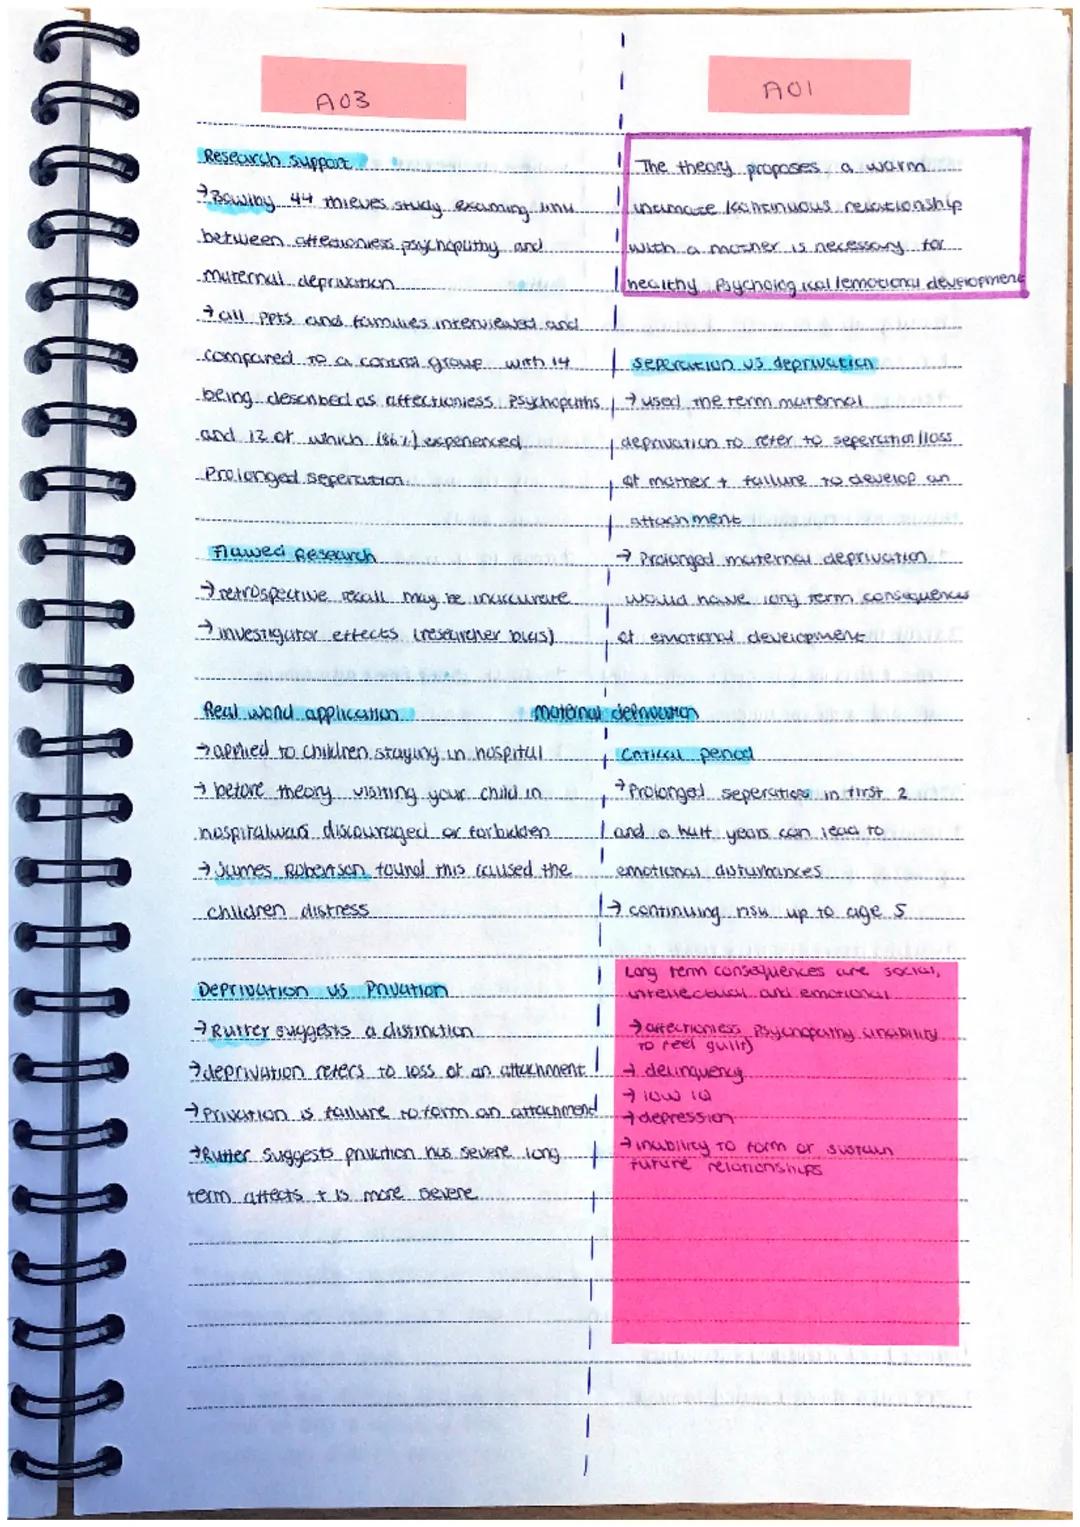 AO3
Research support
→ Bowlby 44 thieves study examing link
between affectionless psychopathy and
maternal deprivation
→ all ppts and families interviewed and
compared to a control group with 14
being described as affectionless psychopaths
and 12 of which (86%) experienced
Prolonged seperation.
Flawed Research
→ retrospective recall may be inaccurate
→ investigator effects (researcher bias)
Real world application
→ applied to children staying in hospital
→ before theory visiting your child in
hospital ward discouraged or forbidden
→ James Robertson found this caused the
children distress
Deprivation vs Privation
→ Rutter suggests a distinction
→ deprivation refers to loss of an attachment
→ Privation is failure to form an attachment
→ Rutter suggests privation has severe long
term affects + is more severe
maternal deprivation
AO1
The theory proposes a warm
intamate /continuous relationship
with a mother is necessary for
healthy Psychological/emotional development
seperation vs deprivation
→ used the term maternal
deprivation to refer to seperation/loss
of mother + failure to develop an
attachment
→ Prolonged maternal deprivation
would have long term consequences
of emotional development
Critical period
→ Prolonged seperation in first 2
and a half years can lead to
emotional disturbances
→ continuing risk up to age 5
Long term consequences are social,
intellectual and emotional
→ affectionless Psychopathy (inability
to feel guilt)
→ delinquency
→ low IQ
→ depression
→ inability to form or sustain
future relationships